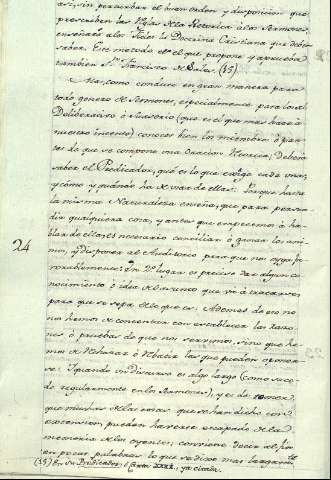 assi, sin perturbar el buen orden y disposicion que
prescriben las Reglas de la Retorica à los Sermones,
enseñarà a los Fieles la Doctrina Cristiana que deben
saber. Este metodo es el que propone y aprueba
tambien Sn. Francisco de Sales. (15)
Mas, como conduce en gran manera para
todo genero de Sermones, especialmente para los del
Deliberativo ò Suasorio (que es el que mas hace à
nuestro intento) conocer bien los miembros ò par-
tes de que se compone una Oracion Retorica; Deberà
saber el Predicador, què es lo que exige cada una,
y còmo y quàndo ha de usar de ellas. Porque hasta
la misma Naturaleza enseña, que para persua-
dir qualquiera cosa, y antes que empecemos à ha-
blar de ella es necesario conciliar ò ganar los ani-
24
mos, y disponer al Auditorio para que nos oyga fa-
vorablemente: En 2º lugar es preciso dar algun co-
nocimiento ò idea del asunto que và à tratarse
para que se sepa de lo que es. Ademas de eso no
nos hemos de contentar con establecer las razo-
nes ò pruebas de que nos servimos, sino que he-
mos de rehusar ò rebatir las que pueden oponer-
se. Y quando un Discurso es algo largo (como suce-
de regularmente en los Sermones), y es de temer
que muchas de las cosas que se han dicho con
extension pueden haverse escapado de la
memoria de los oyentes; conviene decir al fin
en pocas palabras, lo que se dixo mas largamte.
(15) En su Predicador, ò Carta XXXI, ya citada.